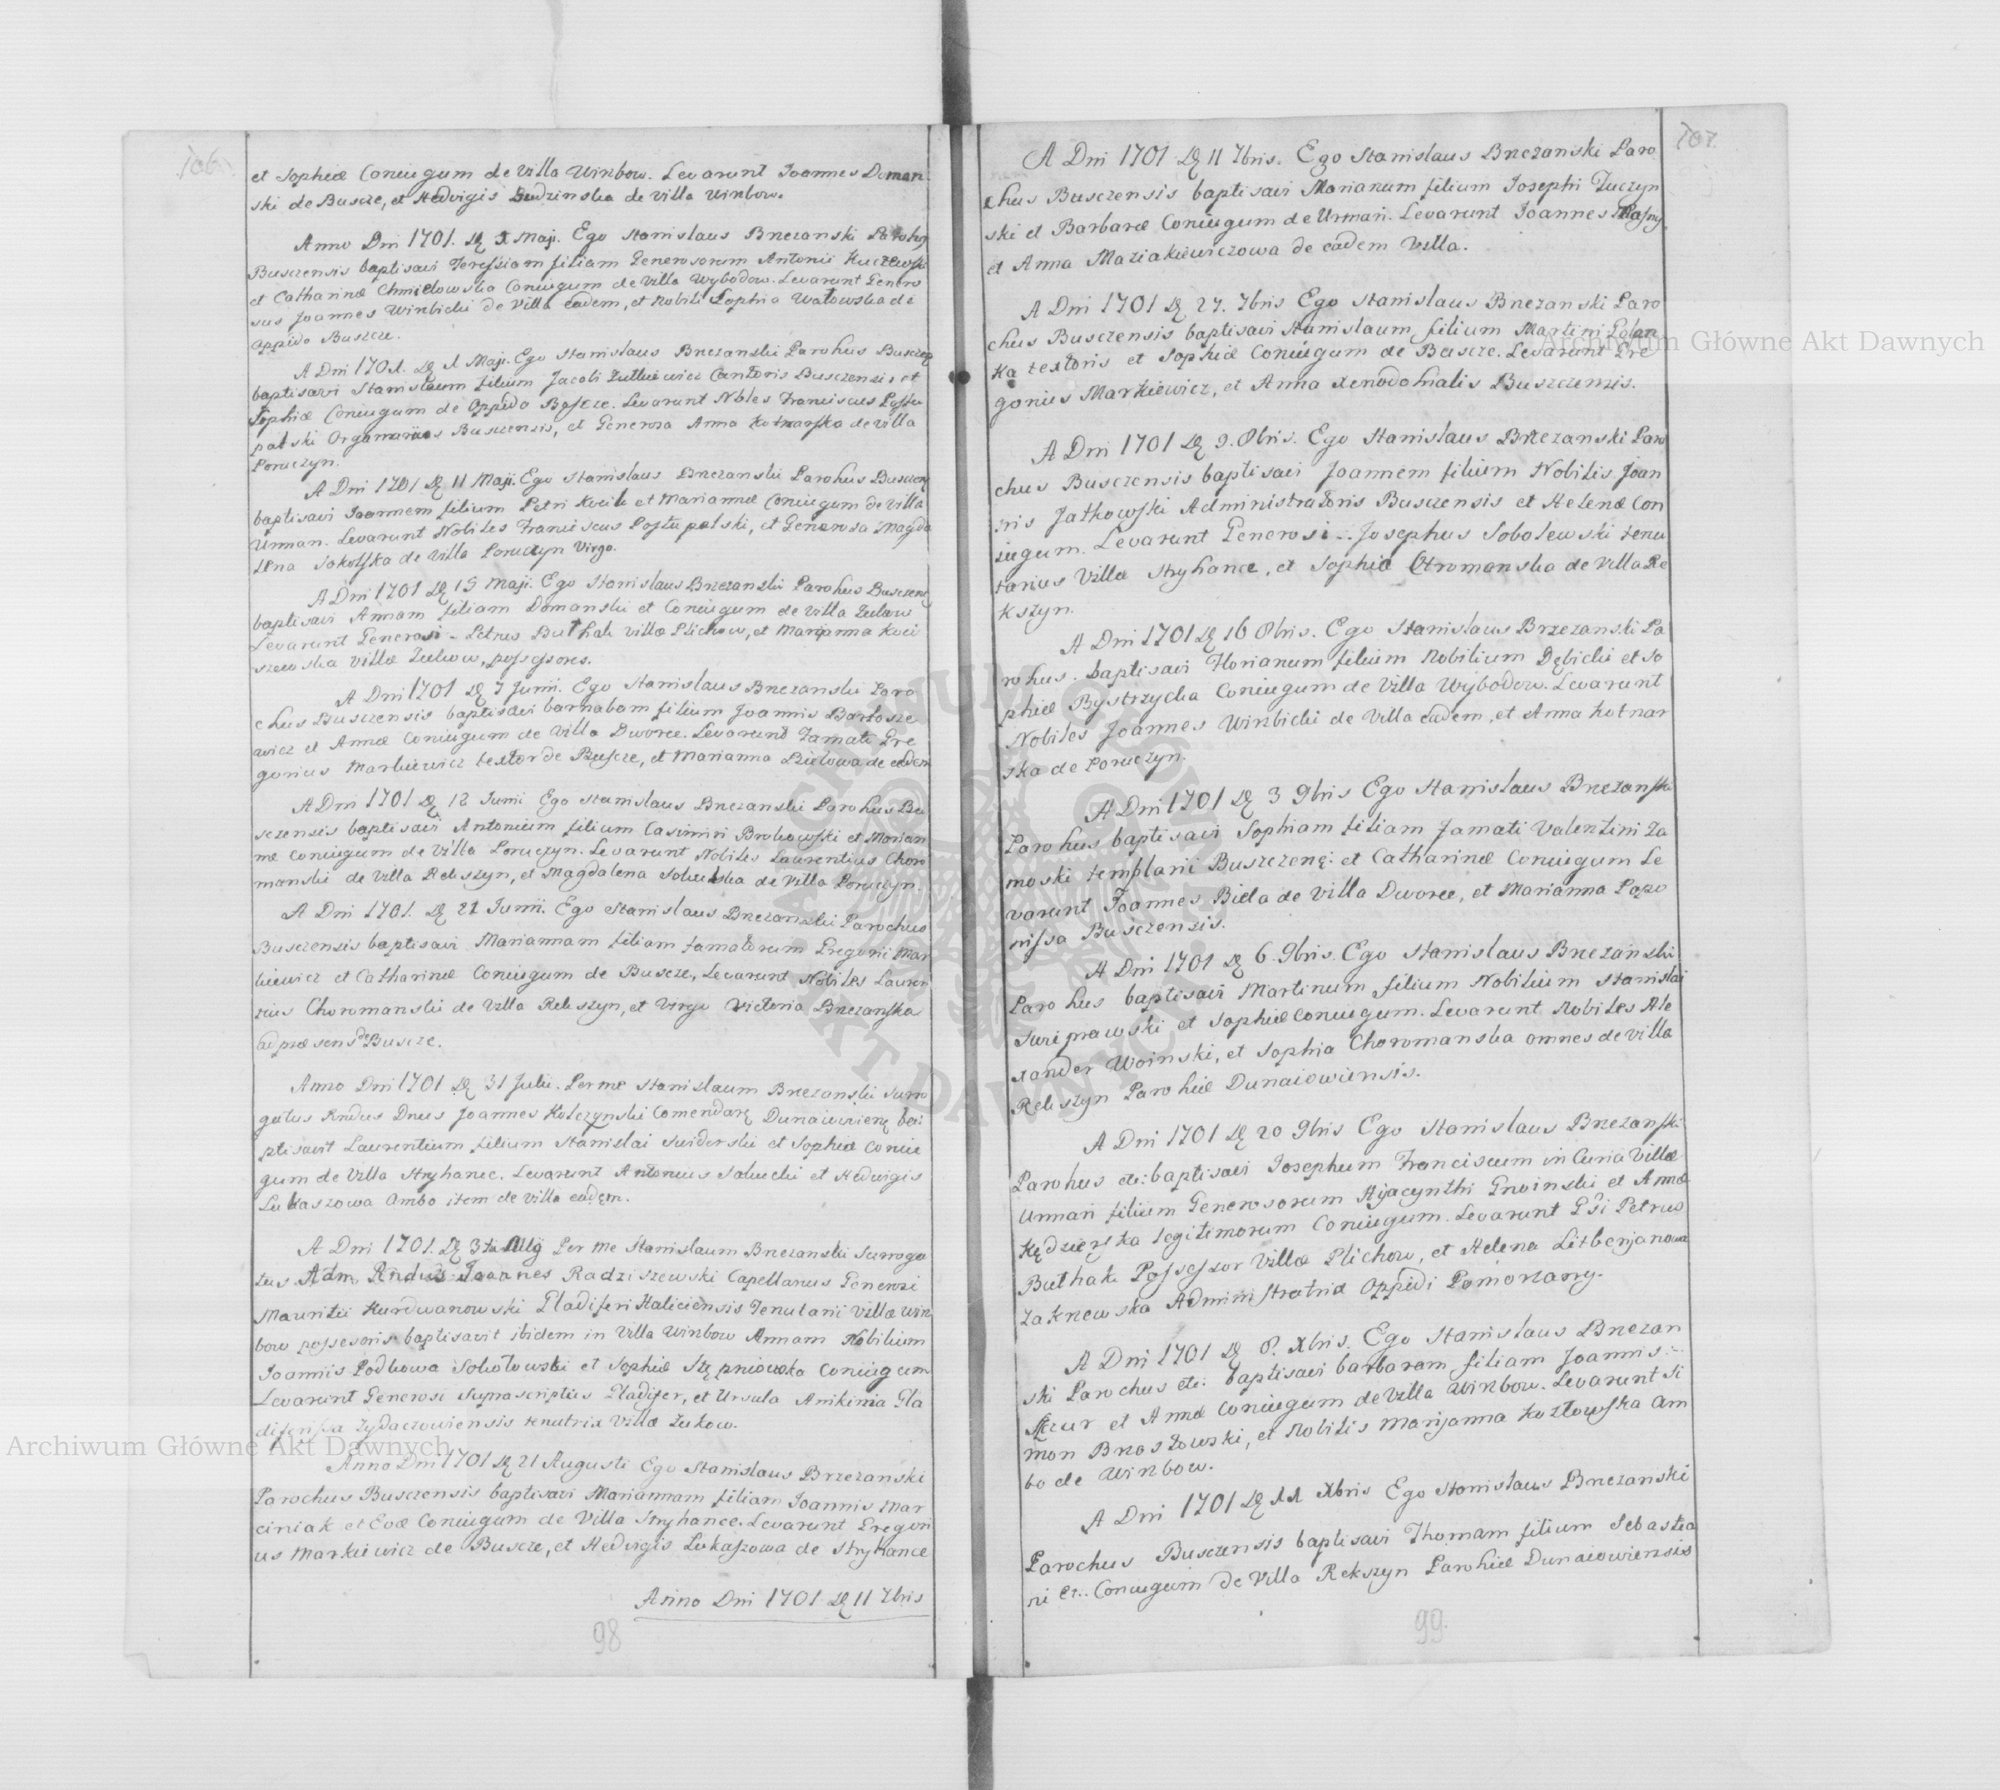 106.
et Sophiæ Coniugum de Villa Wirzbow. Levarunt Joannes Doman
ski de Buscze, et Hedvigis Budzinska de villa Wirzbow.
Anno Dni 1701. Dę Maji. Ego Stanislaus Brzezanski Parohus
Busczensis baptisavi Teressiam filiam Generosorum Antonii Kuczewski
et Catharinæ Chmielowska Coniugum de Villa Wybodow. Levarunt Genero
sus Joannes Wirzbicki de Villa eadem, et Nobili Sophia Watowska de
oppido Buscze.
A Dni 1701. Dę 1 Maji. Ego Stanislaus Brzezanski Parohus Busczeę
baptisavi Stanislaum filium Jacobi Cantoris Busczensis et
Sophiæ Coniugum de Oppido Buscze. Levarunt Nbles Franciscus Postu
palski Busczensis, et Generosa Anna Kotnarska de villa
Poruczyn.
A Dni 1701 Dę 11 Maji. Ego Stanislaus Brzezanski Parohus Busczeę
baptisavi Joannem filium Petri et Mariannæ Coniugum de Villa
Urman. Levarunt Nobiles Franciscus Postupalski, et Generosa Magda
lena Sokolska de Villa Poruczyn Virgo.
A Dni 1701 Dę 15 Maji. Ego Stanislaus Brzezanski Parohus Busczeę
baptisavi Annam filiam Domanski et Coniugum de Villa Zukow
Levarunt Generosi - Petrus Buthak villæ Plichow, et Marijanna Koci
szewska Villæ Zukow, possessores.
A Dni 1701 Dę 7 Junii. Ego Stanislaus Brzezanski Paro
chus Busczensis baptisavi barnabam filium Joannis Bartosze
wicz et Annæ Coniugum de Villa Dworce. Levarunt Famati Gre
gorius Markiewicz textor de Buscze, et Marianna Bielowa de eadem
A Dni 1701 Dę 12 Junii Ego Stanislaus Brzezanski Parohus Bu
sczensis baptisavi Antonium filium Casimiri Brohowski et Marian
næ Coniugum de Villa Poruczyn. Levarunt Nobiles Laurentius Choro
manski de Villa Rekszyn, et Magdalena de Villa Poruczyn.
A Dni 1701. Dę 21 Junii. Ego Stanislaus Brzezanski Parochus
Busczensis baptisavi Mariannam filiam famatorum Gregorii Mar
kiewicz et Catharinæ Coniugum de Buscze, Levarunt Nobiles Lauren
tius Choromanski de Villa Rekszyn, et Virgo Victoria Brzezanska
ad præsens de Buscze.
Anno Dni 1701 Dę 31 Julii. Per me Stanislaum Brzezanski surro
gatus Rndus Dnus Joannes Kolczynski Comendarę Dunaiovienę ba:
ptisavit Laurentium filium Stanislai Swiderski et Sophiæ Coniu
gum de Villa Stryhance. Levarunt Antonius Sawicki et Hedvigis
Lukaszowa Ambo item de Villa eadem.
A Dni 1701. Dę 3tia Aug Per me Stanislaum Brzezanski Surroga
tus Adm Rndus Joannes Radziszewski Capellanus Generosi
Mauritii Kurdwanowski Gladiferi Haliciensis Tenutarii Villæ Wirz
bow possessoris baptisavit ibidem in Villa Wirzbow Annam Nobilium
Joannis Podkowa Sokolowski et Sophiæ Stępniowska Coniugum
Levarunt Generosi Suprascriptus Gladifer, et Ursula Gla
diferissa Zydaczowiensis tenutrix Villæ Zukow.
Anno Dni 1701 Dę 21 Augusti Ego Stanislaus Brzezanski
Parochus Busczensis baptisavi Mariannam filiam Joannis Mar
ciniak et Evæ Coniugum de Villa Stryhance. Levarunt Gregori
us Markiewicz de Buscze, et Hedvigis Lukaszowa de Stryhance
Anno Dni 1701 Dę 11 7bris
98
107.
A Dni 1701 Dę 11 7bris. Ego Stanislaus Brzezanski Paro
chus Busczensis baptisavi Marianum filium Josephi Tuczyn
ski et Barbaræ Coniugum de Urman. Levarunt Joannes
et Anna Maziakiewiczowa de eadem Villa.
A Dni 1701 Dę 27. 7bris Ego Stanislaus Brzezanski Paro
chus Busczensis baptisavi Stanislaum filium Martini Polan
ka textoris et Sophiæ Coniugum de Buscze. Levarunt Gre
gorius Markiewicz, et Anna xenodohialis Busczensis.
A Dni 1701 Dę 9. 8bris. Ego Stanislaus Brzezanski Paro
chus Busczensis baptisavi Joannem filium Nobilis Joan
nis Jatkowski Administratoris Busczensis et Helenæ Con
iugum. Levarunt Generosi .. Josephus Sobolewski tenu
tarius Villæ Stryhance, et Sophia Otromanska de Villa Re
kszyn.
A Dni 1701 Dę 16 8bris. Ego Stanislaus Brzezanski Pa
rohus. baptisavi Florianum filium Nobilium Dębicki et So
phiæ Bystrzycka Coniugum de Villa Wybodow. Levarunt
Nobiles Joannes Wirzbicki de Villa eadem, et Anna Kotnar
ska de Poruczyn.
A Dni 1701 Dę 3 9bris Ego Stanislaus Brzezanski
Parohus baptisavi Sophiam filiam Famati Valentini Za
moski templarii Busczenę: et Catharinæ Coniugum Le
varunt Joannes Biela de Villa Dworce, et Marianna
nissa Busczensis.
A Dni 1701 Dę 6. 9bris. Ego Stanislaus Brzezanski
Parohus baptisavi Martinum filium Nobilium Stanislai
et Sophiæ Coniugum. Levarunt Nobiles Ale
xander Woinski, et Sophia Choromanska omnes de villa
Rekszyn Parohiæ Dunaiowiensis.
A Dni 1701 Dę 20 9bris Ego Stanislaus Brzezanski
Parohus etc: baptisavi Josephum Franciscum in Curia Villæ
Urman filium Generosorum Hyacynthi Gnoinski et Annæ
Kędzierska legitimorum Coniugum. Levarunt Gsi Petrus
Buthak Possessor Villæ Plichow, et Helena
Zaknewska Administratrix Oppidi Pomorzany.
A Dni 1701 Dę 8. Xbris. Ego Stanislaus Brzezan
ski Parochus etc: baptisavi barbaram filiam Joannis
Szczur et Annæ Coniugum de Villa Wirzbow. Levarunt Si
mon Brzostowski, et Nobilis Marijanna Kozlowska am
bo de Wirzbow.
A Dni 1701 Dę 11 Xbris Ego Stanislaus Brzezanski
Parochus Busczensis baptisavi Thomam filium Sebastia
ni et.. Coniugum de Villa Rekszyn Parohiæ Dunaiowiensis
99.
Archiwum Główne Akt Dawnych
Archiwum Główne Akt Dawnych
ARCHIWUM GŁÓWNE AKT DAWNYCH